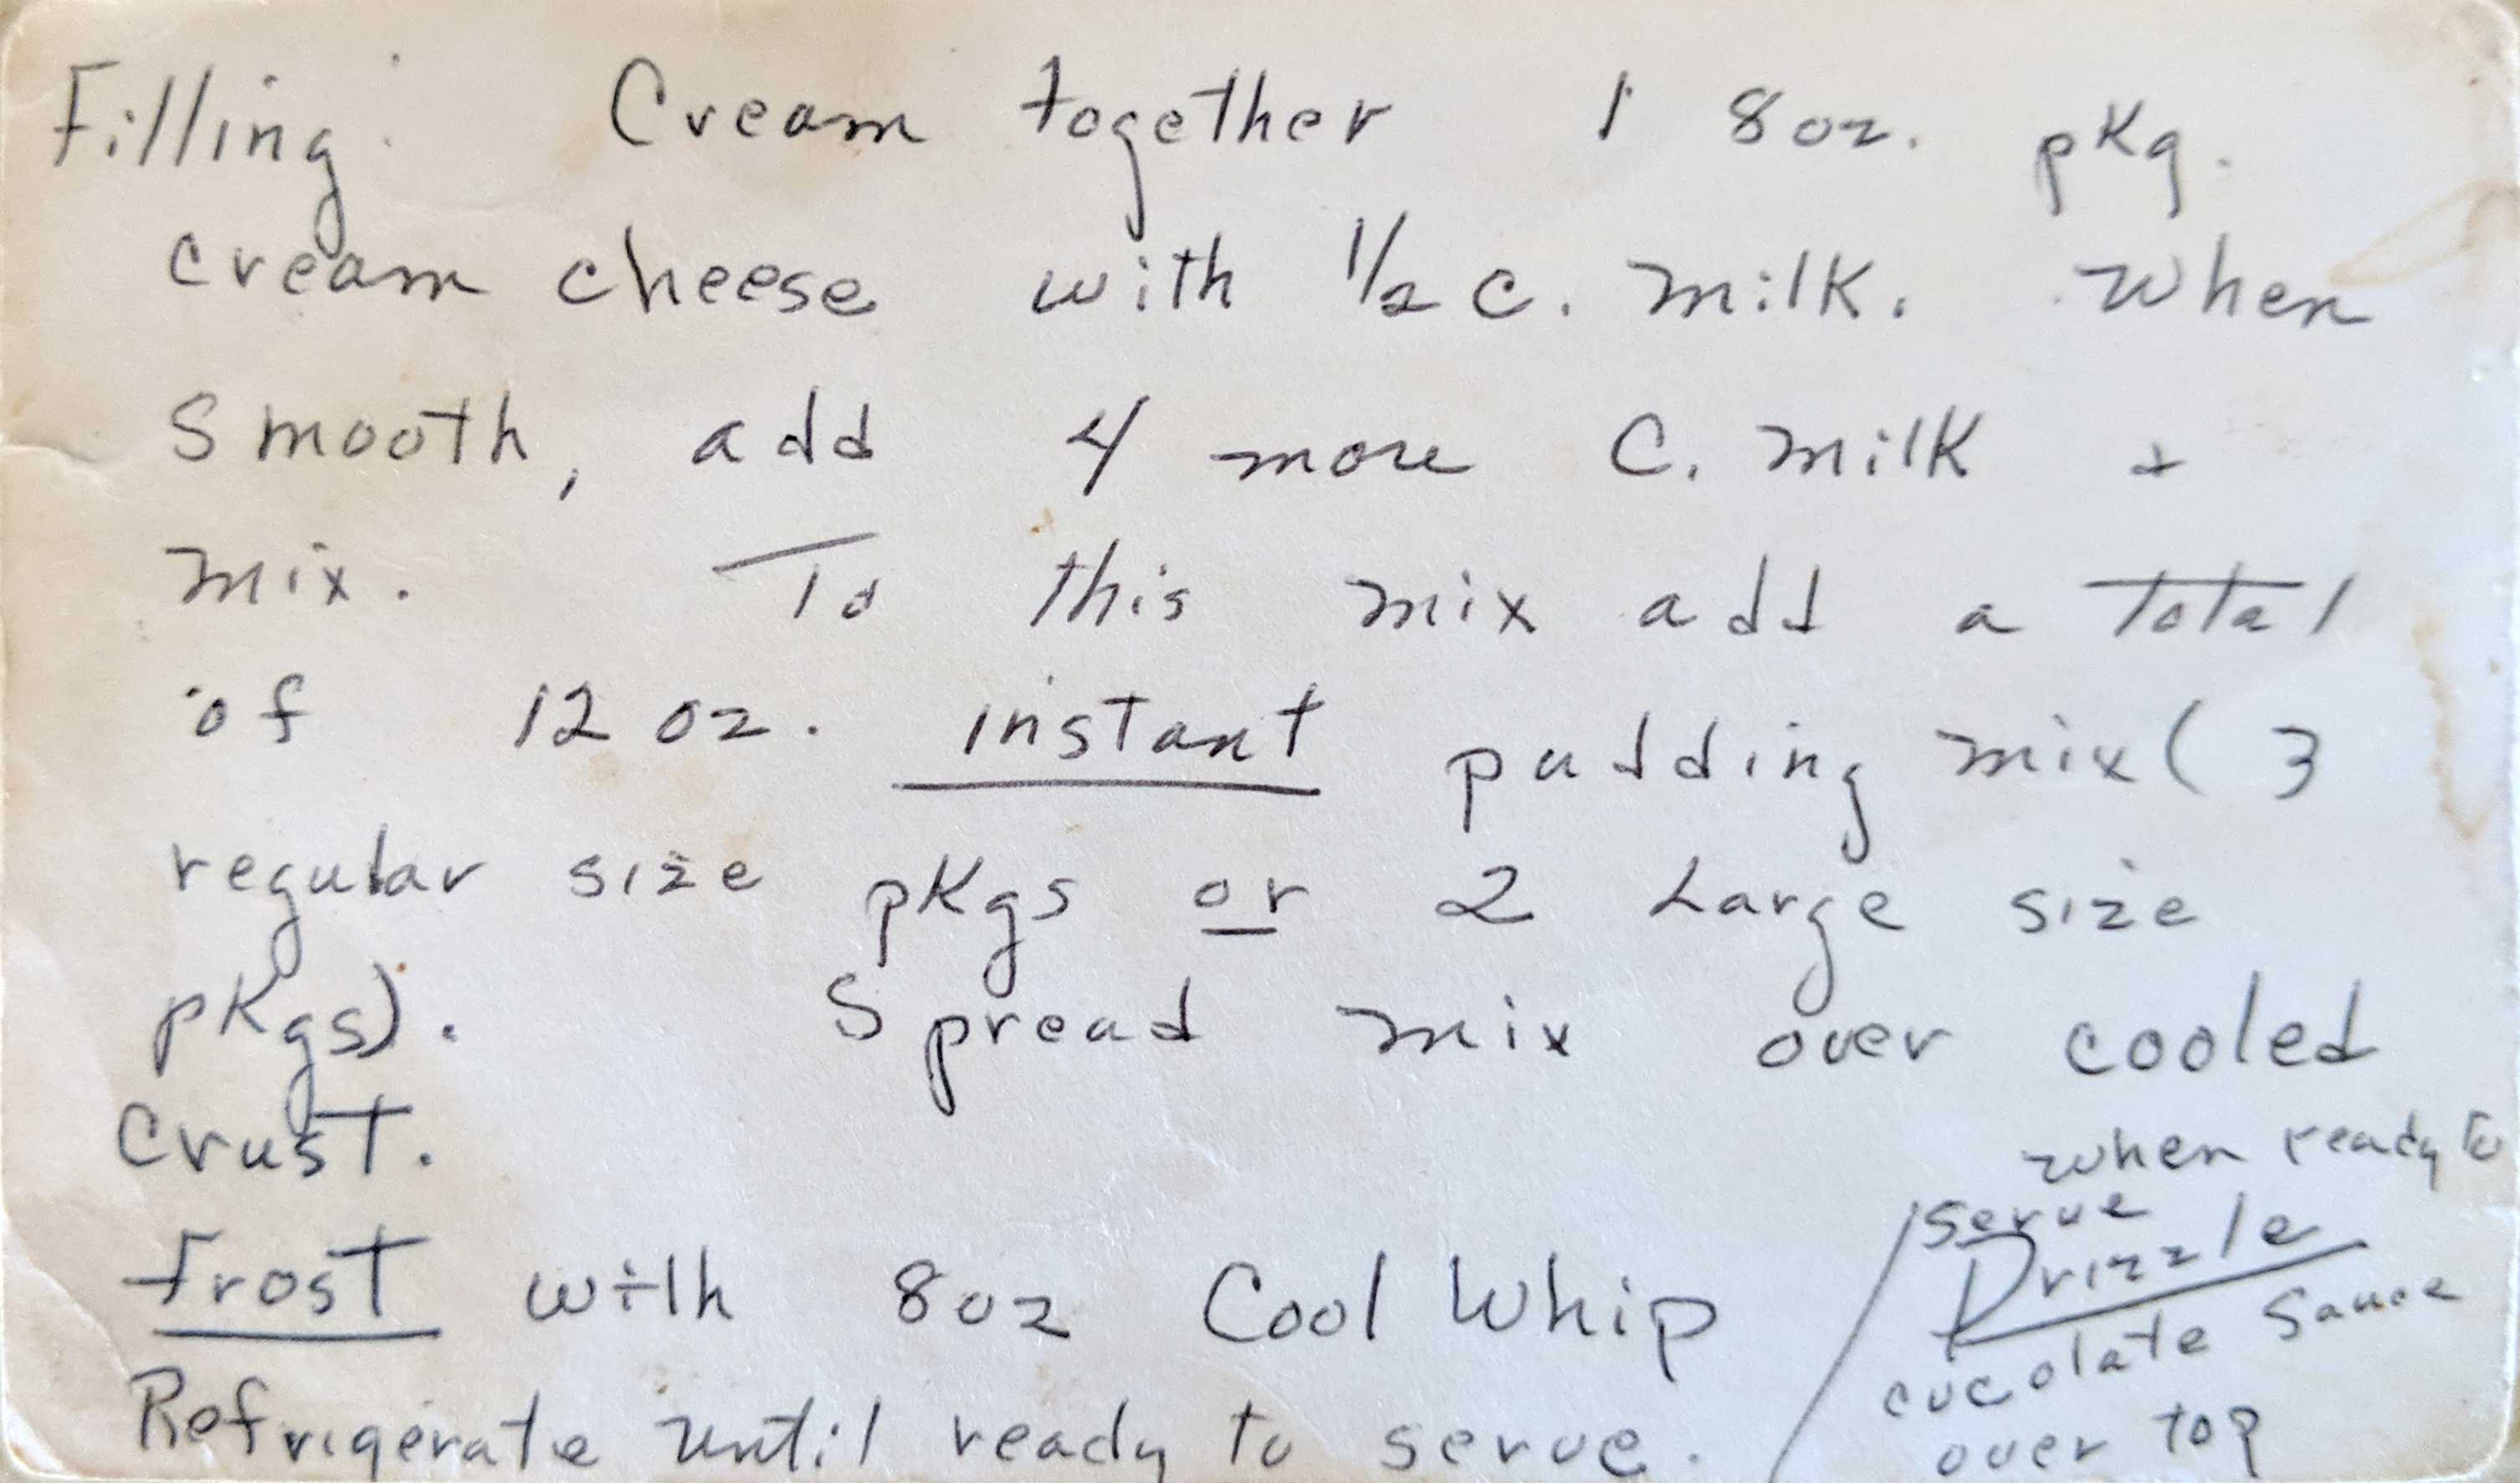 Filling: Cream together 1 8oz. pkg.
cream cheese with 1/2 c. milk. When
Smooth, add 4 more C. milk +
mix. To this mix add a Total
of 12 oz. instant pudding mix ( 3
regular size pkgs or 2 Large size
pkgs). Spread mix over cooled
Crust.
Frost with 8oz Cool Whip
Refrigerate until ready to serve.
when ready to
serve
Drizzle
cucolate sauce
over top